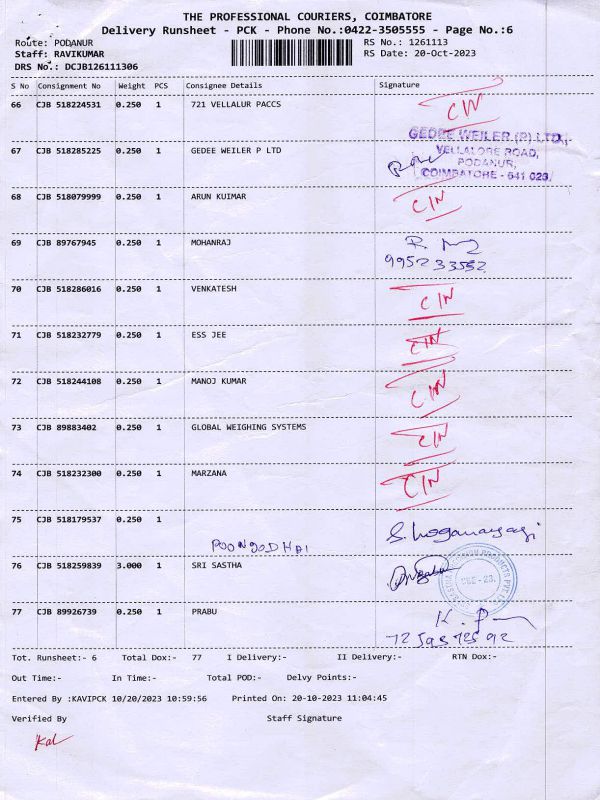 THE PROFESSIONAL COURIERS, COIMBATORE
Delivery Runsheet - PCK - Phone No.:0422-3505555 - Page No.:6
Route: PODANUR RS No.: 1261113
Staff: RAVIKUMAR RS Date: 20-Oct-2023
DRS No.: DCJB126111306
S No Consignment No Weight PCS Consignee Details Signature
66 CJB 518224531 0.250 1 721 VELLALUR PACCS CIN
GEDEE WEILER (P) LTD.,
67 CJB 518285225 0.250 1 GEDEE WEILER P LTD VELLALORE ROAD,
PODANUR,
COIMBATORE - 641 023.
68 CJB 518079999 0.250 1 ARUN KUIMAR CIN
69 CJB 89767945 0.250 1 MOHANRAJ
9952233552
70 CJB 518286016 0.250 1 VENKATESH CIN
71 CJB 518232779 0.250 1 ESS JEE CIN
72 CJB 518244108 0.250 1 MANOJ KUMAR CIN
73 CJB 89883402 0.250 1 GLOBAL WEIGHING SYSTEMS CIN
74 CJB 518232300 0.250 1 MARZANA CIN
75 CJB 518179537 0.250 1
POONGODHAI
76 CJB 518259839 3.000 1 SRI SASTHA
77 CJB 89926739 0.250 1 PRABU
Tot. Runsheet:- 6 Total Dox:- 77 I Delivery:- II Delivery:- RTN Dox:-
Out Time:- In Time:- Total POD:- Delvy Points:-
Entered By :KAVIPCK 10/20/2023 10:59:56 Printed On: 20-10-2023 11:04:45
Verified By Staff Signature